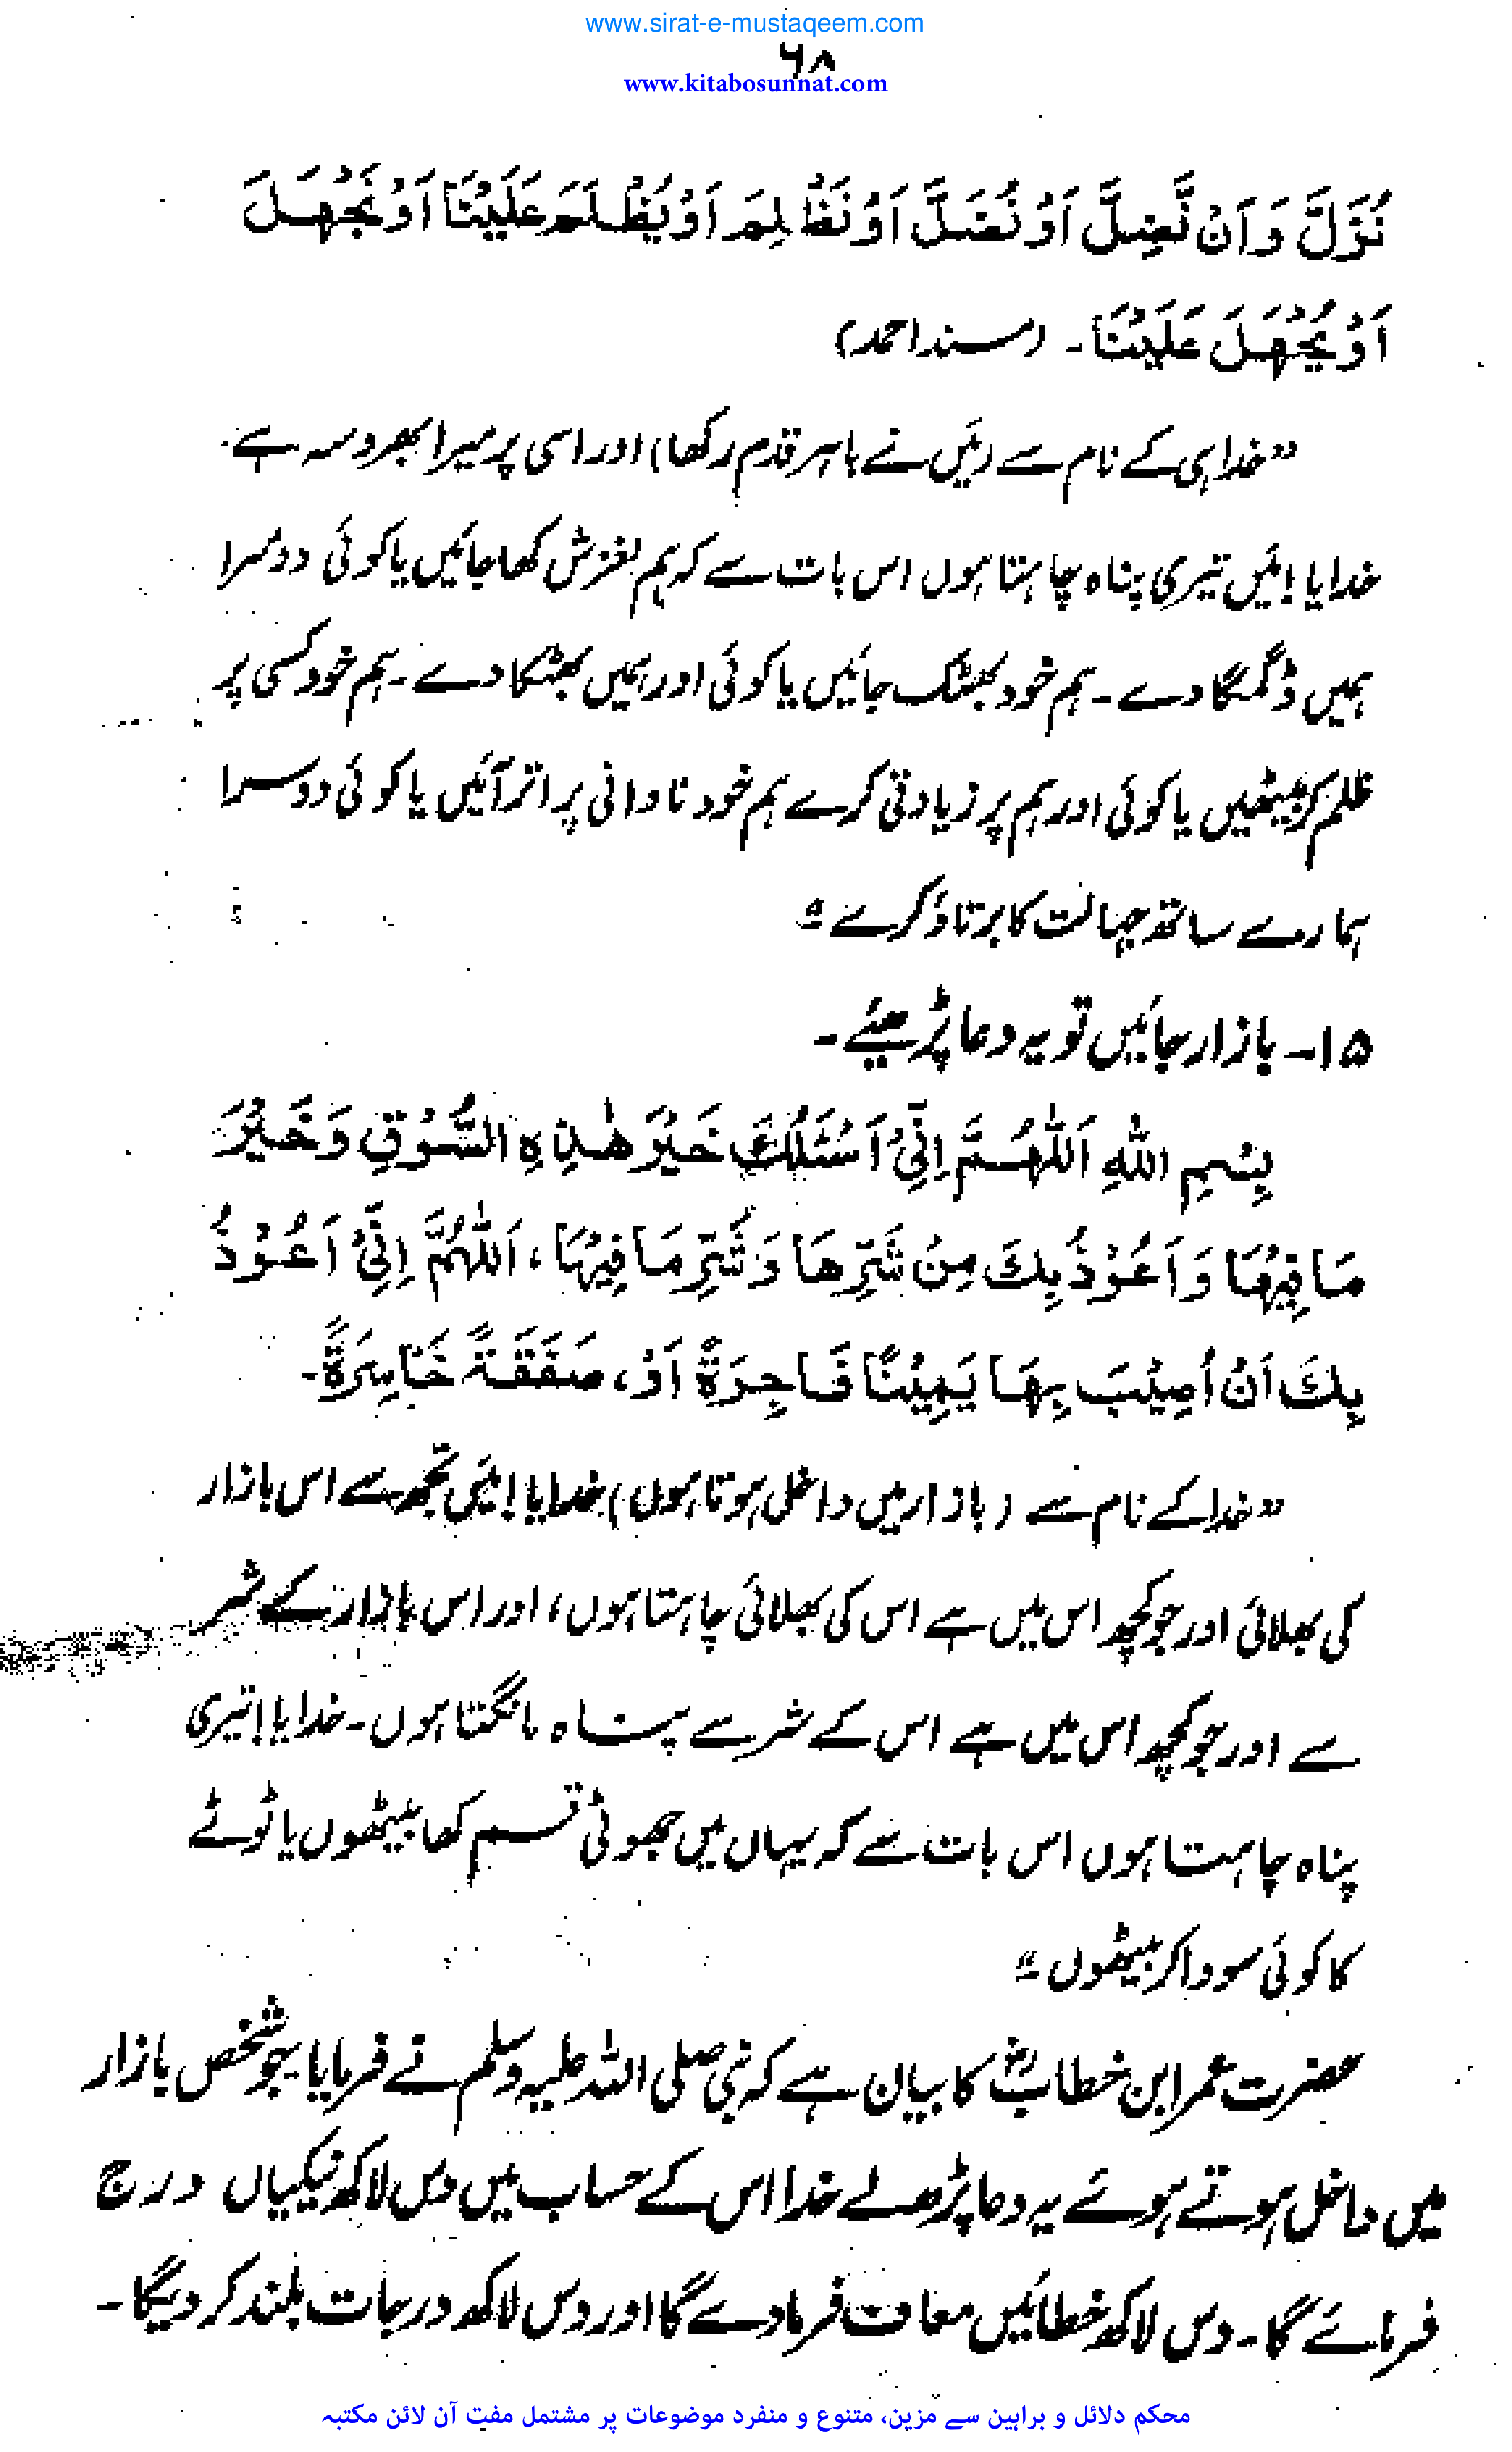 www.sirat-e-mustaqeem.com
۶۸
www.kitabosunnat.com
نُزَلَّ وَاَنْ نَّضِلَّ اَوْ نُضَلَّ اَوْ نَظْلِمَ اَوْ یُظْلَمَ عَلَیْنَا اَوْ نَجْهَلَ
اَوْ یُجْهَلَ عَلَیْنَا۔ (مسند احمد)
”خدا ہی کے نام سے (میَں نے باہر قدم رکھا) اور اسی پر میرا بھروسہ ہے۔
خدایا! میَں تیری پناہ چاہتا ہوں اس بات سے کہ ہم لغزش کھا جائیں یا کوئی دوسرا
ہمیں ڈگمگا دے۔ ہم خود بھٹک جائیں یا کوئی اور ہمیں بھٹکا دے۔ ہم خود کسی پر
ظلم کر بیٹھیں یا کوئی اور ہم پر زیادتی کرے ہم خود نادانی پر اتر آئیں یا کوئی دوسرا
ہمارے ساتھ جہالت کا برتاؤ کرے“
۱۵۔ بازار جائیں تو یہ دعا پڑھیئے۔
بِسْمِ اللهِ اَللّٰهُمَّ اِنِّیْ اَسْئَلُكَ خَیْرَ هٰذِهِ السُّوْقِ وَخَیْرَ
مَا فِیْهَا وَاَعُوْذُ بِكَ مِنْ شَرِّهَا وَشَرِّ مَا فِیْهَا، اَللّٰهُمَّ اِنِّیْ اَعُوْذُ
بِكَ اَنْ اُصِیْبَ بِهَا یَمِیْنًا فَاجِرَةً اَوْ، صَفَقَةً خَاسِرَةً۔
”خدا کے نام سے (بازار میں داخل ہوتا ہوں) خدایا! میَں تجھ سے اس بازار
کی بھلائی اور جو کچھ اس میں ہے اس کی بھلائی چاہتا ہوں، اور اس بازار کے شر
سے اور جو کچھ اس میں ہے اس کے شر سے پناہ مانگتا ہوں۔ خدایا! تیری
پناہ چاہتا ہوں اس بات سے کہ یہاں میں جھوٹی قسم کھا بیٹھوں یا ٹوٹے
کا کوئی سودا کر بیٹھوں“
حضرت عمر ابن خطابؓ کا بیان ہے کہ نبی صلی اللہ علیہ وسلم نے فرمایا جو شخص بازار
میں داخل ہوتے ہوئے یہ دعا پڑھ لے خدا اس کے حساب میں دس لاکھ نیکیاں درج
فرمائے گا۔ دس لاکھ خطائیں معاف فرما دے گا اور دس لاکھ درجات بلند کر دیگا۔
محکم دلائل و براہین سے مزین، متنوع و منفرد موضوعات پر مشتمل مفت آن لائن مکتبہ